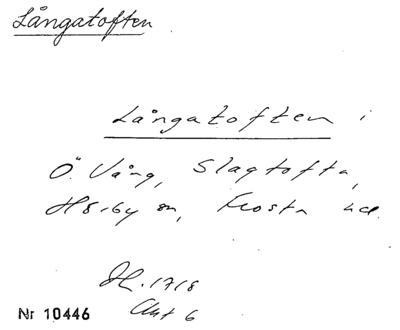 Långatoften
Långatoften i
Ö. Vång, Slagtofta,
Hörby sn, Frosta hd.
H. 1718
Akt 6
Nr 10446